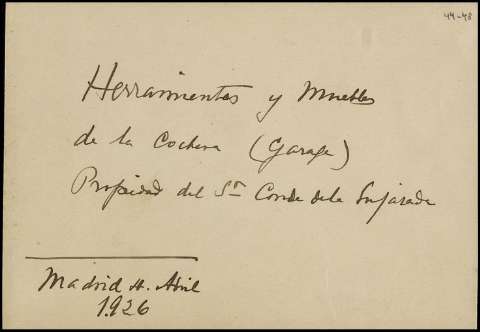 44-48
Herramientas y Muebles
de la Cochera (Garage)
Propiedad del Sr Conde de la
Madrid 4. Abril
1926